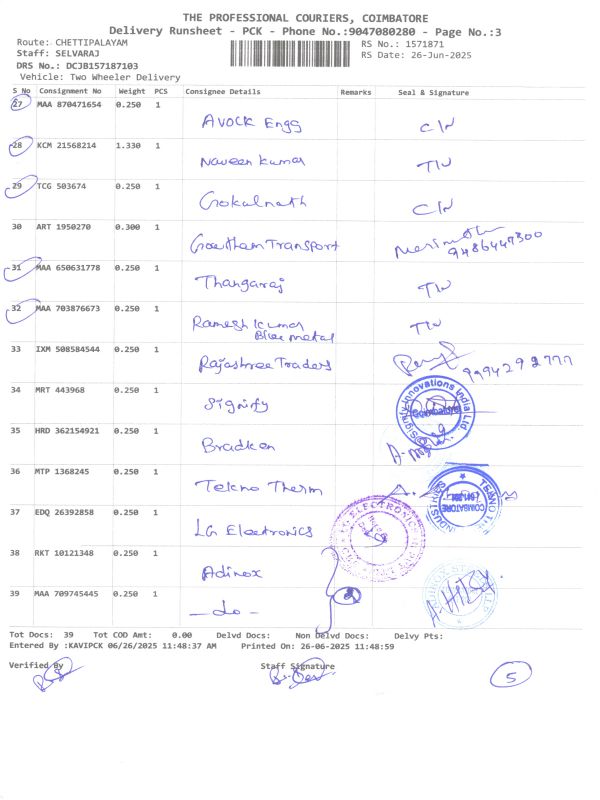 THE PROFESSIONAL COURIERS, COIMBATORE
Delivery Runsheet - PCK - Phone No.:9047080280 - Page No.:3
Route: CHETTIPALAYAM RS No.: 1571871
Staff: SELVARAJ RS Date: 26-Jun-2025
DRS No.: DCJB157187103
Vehicle: Two Wheeler Delivery
S No Consignment No Weight PCS Consignee Details Remarks Seal & Signature
27 MAA 870471654 0.250 1
Avock Engg C/N
28 KCM 21568214 1.330 1
Naveen kumar T/N
29 TCG 503674 0.250 1
Gokalnath C/N
30 ART 1950270 0.300 1
Goutham Transport 9486447300
31 MAA 650631778 0.250 1
Thangaraj T/N
32 MAA 703876673 0.250 1
Ramesh kumar T/N
Blue metal
33 IXM 508584544 0.250 1
Rajashree Traders 9994292777
34 MRT 443968 0.250 1
Signify Signify Innovations India Ltd Coimbatore
35 HRD 362154921 0.250 1
Bradken
36 MTP 1368245 0.250 1
Tekno Therm TEKNO THE INDUSTRIES COIMBATORE
37 EDQ 26392858 0.250 1
LG Electronics ELECTRONICS
38 RKT 10121348 0.250 1
Adinox
39 MAA 709745445 0.250 1
- do -
Tot Docs: 39 Tot COD Amt: 0.00 Delvd Docs: Non Delvd Docs: Delvy Pts:
Entered By :KAVIPCK 06/26/2025 11:48:37 AM Printed On: 26-06-2025 11:48:59
Verified By Staff Signature
5